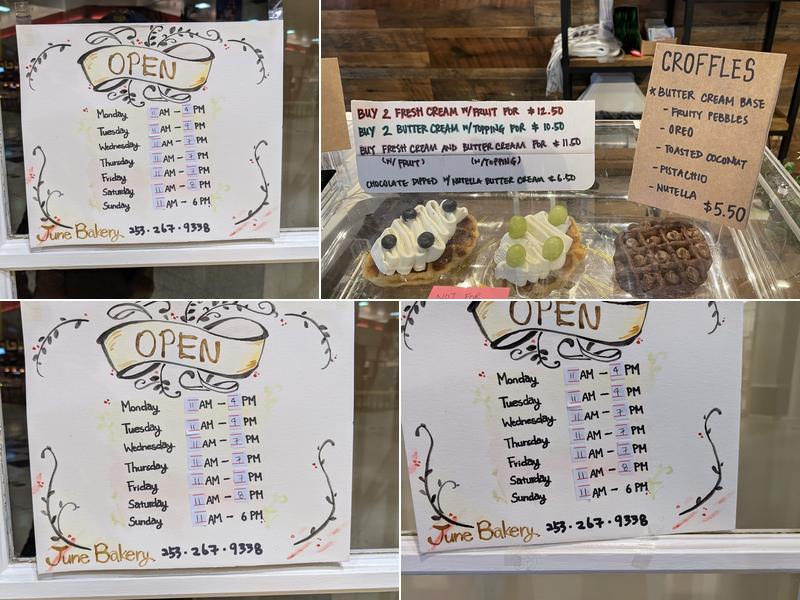 OPEN
Monday 11 AM - 4 PM
Tuesday 11 AM - 4 PM
Wednesday 11 AM - 7 PM
Thursday 11 AM - 7 PM
Friday 11 AM - 7 PM
Saturday 11 AM - 8 PM
Sunday 11 AM - 6 PM
June Bakery 253·267·9338
BUY 2 FRESH CREAM W/FRUIT FOR $12.50
BUY 2 BUTTER CREAM W/TOPPING FOR $10.50
BUY FRESH CREAM AND BUTTER CREAM FOR $11.50
(W/FRUIT) (W/TOPPING)
CHOCOLATE DIPPED W/ NUTELLA BUTTER CREAM $6.50
CROFFLES
* BUTTER CREAM BASE
- FRUITY PEBBLES
- OREO
- TOASTED COCONUT
- PISTACHIO
- NUTELLA
$5.50
NOT FOR
OPEN
Monday 11 AM - 4 PM
Tuesday 11 AM - 4 PM
Wednesday 11 AM - 7 PM
Thursday 11 AM - 7 PM
Friday 11 AM - 7 PM
Saturday 11 AM - 8 PM
Sunday 11 AM - 6 PM
June Bakery 253·267·9338
OPEN
Monday 11 AM - 4 PM
Tuesday 11 AM - 4 PM
Wednesday 11 AM - 7 PM
Thursday 11 AM - 7 PM
Friday 11 AM - 7 PM
Saturday 11 AM - 8 PM
Sunday 11 AM - 6 PM
June Bakery 253·267·9338